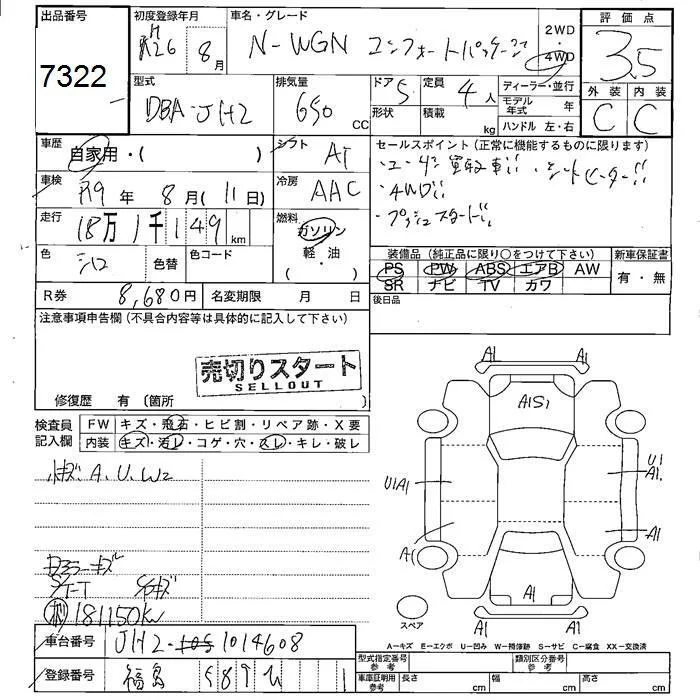 出品番号
7322
初度登録年月
H
R26 8月
車名・グレード
N-WGN コンフォートパッケージ
2WD
・
4WD
評価点
3.5
外装 内装
C C
型式
DBA-JH2
排気量
650 cc
ドア 5
形状
定員 4人
積載 kg
ディーラー・並行
モデル年式 年
ハンドル 左・右
車歴
自家用・( )
シフト
AT
車検
R9年 8月(11日)
冷房
AAC
走行
18万1千149 km
燃料
ガソリン
軽・油
( ・ )
色
シロ
色替
色コード
R券
8,680円
名変期限 月 日
セールスポイント(正常に機能するものに限ります)
・ユーザー買取車!! ・シートヒーター!!
・4WD!!
・プッシュスタート!!
装備品(純正品に限り○をつけて下さい)
PS PW ABS エアB AW
SR ナビ TV カワ
新車保証書
有・無
後日品
注意事項申告欄(不具合内容等は具体的に記入して下さい)
売切りスタート
SELLOUT
修復歴 有(箇所 )
検査員
記入欄
FW キズ・飛石・ヒビ割・リペア跡・X要
内装 キズ・汚レ・コゲ・穴・スレ・キレ・破レ
小キズ A.U.W2
181150km
A1 A1
A1S1
U1A1
U1
A1.
A1
A1
A1
A1 A1
スペア
A-キズ E-エクボ U-凹み W-補修跡 S-サビ C-腐食 XX-交換済
車台番号
JH2-1014608
登録番号
福島
型式指定番号
参考
類別区分番号
参考
車庫証明用
参考
長さ cm
幅 cm
高さ cm